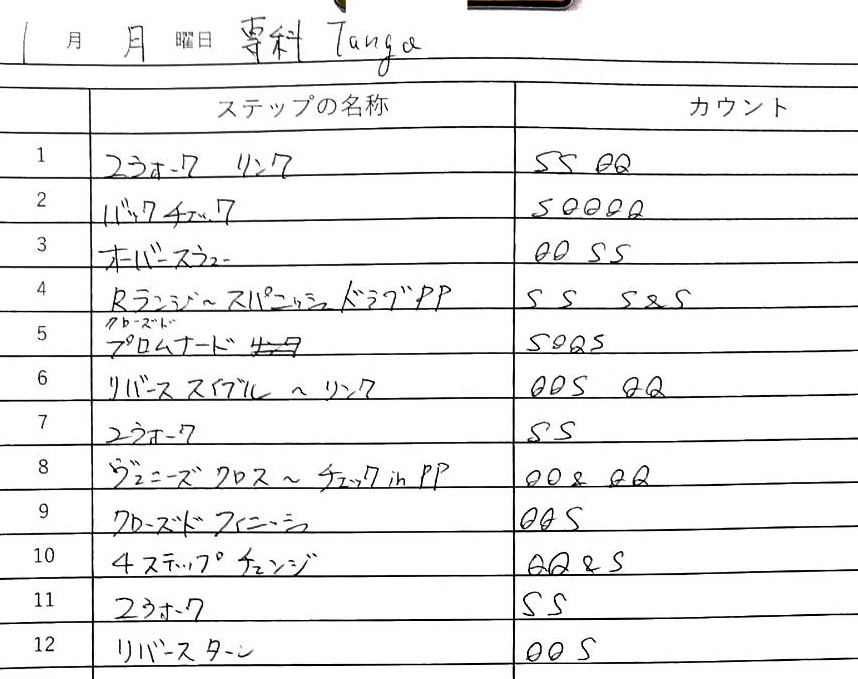 1月 月 曜日 専科 Tango
ステップの名称 カウント
1 2ウォーク リンク SS QQ
2 バックチェック SQQQQ
3 オーバースウェー QQ SS
4 Rランジ〜スパニッシュドラグPP S S S&S
クローズド
5 プロムナード SQQS
6 リバース スイブル 〜 リンク QQS QQ
7 2ウォーク SS
8 ヴェニーズ クロス 〜 チェック in PP QQ& QQ
9 クローズド フィニーシュ QQS
10 4ステップ チェンジ QQ&S
11 2ウォーク SS
12 リバース ターン QQ S